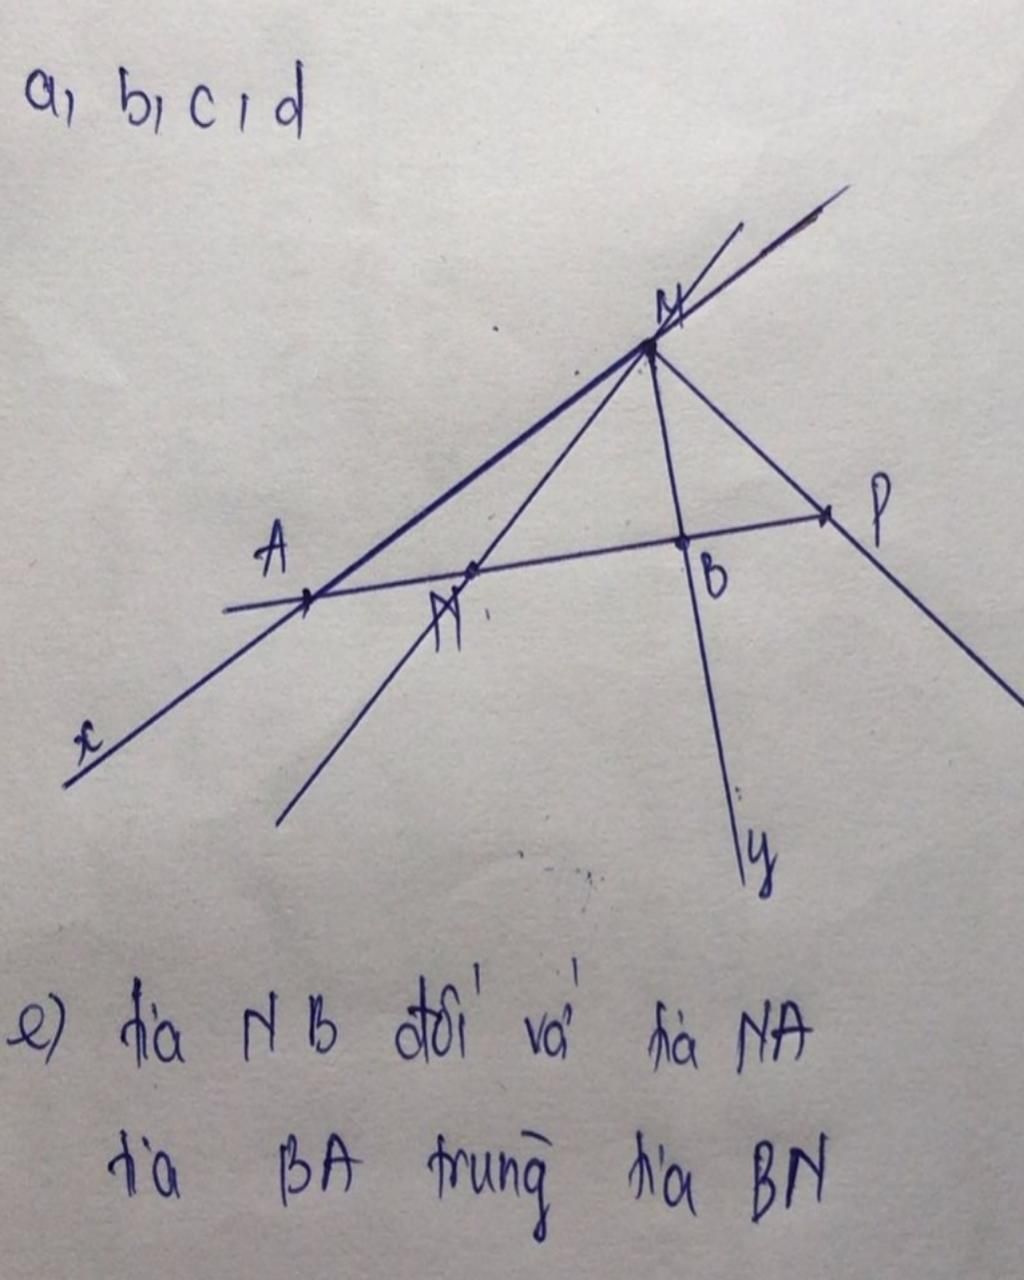 a, b, c, d
M
A
P
N
B
x
y
e) tia NB đối với tia NA
tia BA trùng tia BN